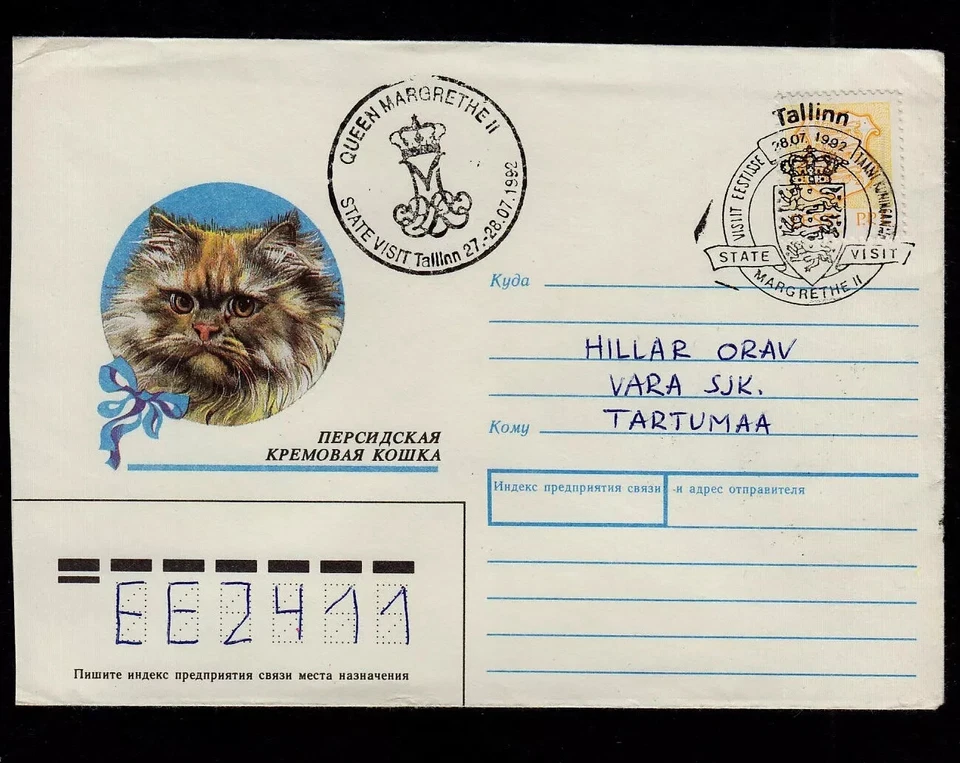 QUEEN MARGRETHE II
STATE VISIT Tallinn 27.-28.07.1992
Tallinn
28.07.1992
VISIIT EESTISSE
TAANI KUNINGANNA
STATE VISIT
MARGRETHE II
PP
Куда
HILLAR ORAV
VARA SJK.
Кому TARTUMAA
ПЕРСИДСКАЯ
КРЕМОВАЯ КОШКА
Индекс предприятия связи и адрес отправителя
EE2411
Пишите индекс предприятия связи места назначения